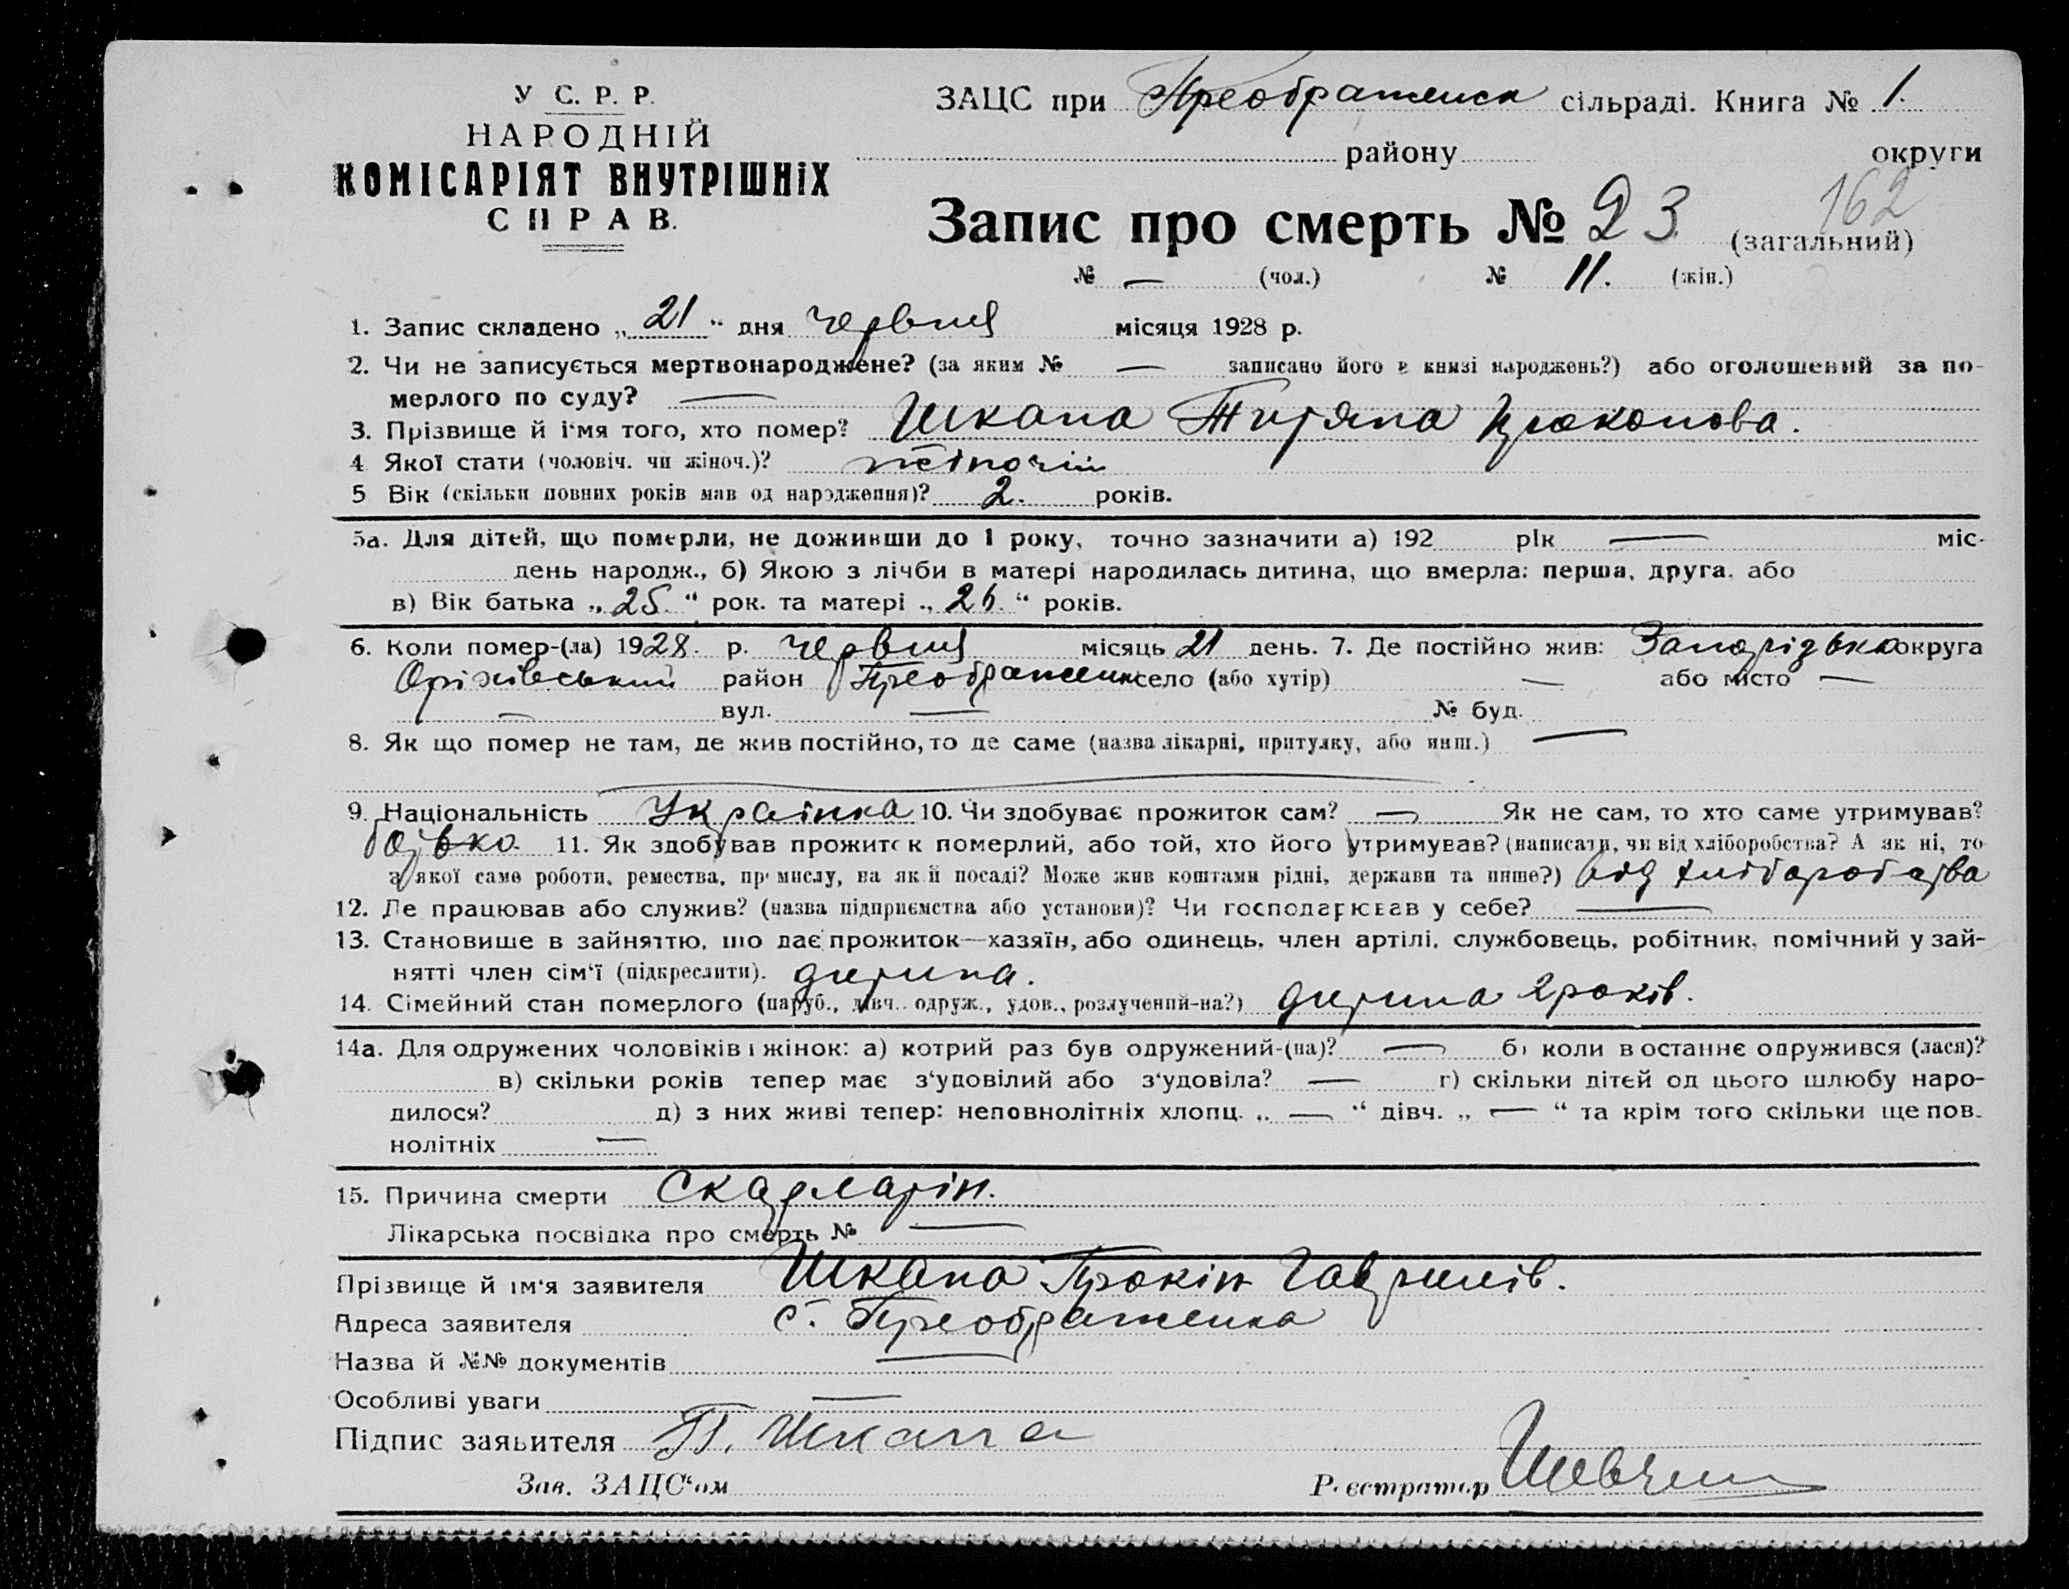 У С. Р. Р.
НАРОДНІЙ
КОМІСАРІЯТ ВНУТРІШНІХ
СПРАВ.
ЗАЦС при Преображенск сільраді. Книга № 1.
району округи
162
Запис про смерть № 23 (загальний)
№ — (чол.) № 11. (жін.)
1. Запис складено „ 21 “ дня червня місяця 1928 р.
2. Чи не записується мертвонароджене? (за яким № — записано його в книзі народжень?) або оголошений за по-
мерлого по суду? —
3. Прізвище й ім'я того, хто помер? Шкапа Титяна Прокопова.
4 Якої стати (чоловіч. чи жіноч.)? жіночій
5 Вік (скільки повних років мав од народження)? 2. років.
5а. Для дітей, що померли, не доживши до 1 року, точно зазначити а) 192 рік — міс-
день народж., б) Якою з лічби в матері народилась дитина, що вмерла: перша, друга, або
в) Вік батька „ 25. “ рок. та матері „ 26. “ років.
6. Коли помер-(ла) 1928. р. червня місяць 21 день. 7. Де постійно жив: Запорізька округа
Оріхівський район Преображенк село (або хутір) — або місто —
— вул. — № буд.
8. Як що помер не там, де жив постійно, то де саме (назва лікарні, притулку, або инш.) —
9. Національність Українка 10. Чи здобуває прожиток сам? — Як не сам, то хто саме утримував?
батько. 11. Як здобував прожиток померлий, або той, хто його утримував? (написати, чи від хліборобства? А як ні, то
з якої саме роботи, ремества, промислу, на якій посаді? Може жив коштами рідні, держави та инше?) від хліборобства
12. Де працював або служив? (назва підприємства або установи)? Чи господарював у себе? —
13. Становище в зайняттю, що дає прожиток—хазяїн, або одинець, член артілі, службовець, робітник, помічний у зай-
нятті член сім'ї (підкреслити). дитина.
14. Сімейний стан померлого (паруб., дівч. одруж., удов., розлучений-на?) дитина 2 років.
14а. Для одружених чоловіків і жінок: а) котрий раз був одружений-(на)? — б) коли востаннє одружився (лася)?
в) скільки років тепер має з‘удовілий або з‘удовіла? — г) скільки дітей од цього шлюбу наро-
дилося? д) з них живі тепер: неповнолітніх хлопц. „ — “ дівч. „ — “ та крім того скільки ще пов-
нолітніх —
15. Причина смерти Скарлатін.
Лікарська посвідка про смерть № —
Прізвище й ім'я заявителя Шкапа Прокіп Гаврилів.
Адреса заявителя с. Преображенка
Назва й №№ документів —
Особливі уваги —
Підпис заявителя П. Шкапа
Зав. ЗАЦС‘ом Реєстратор